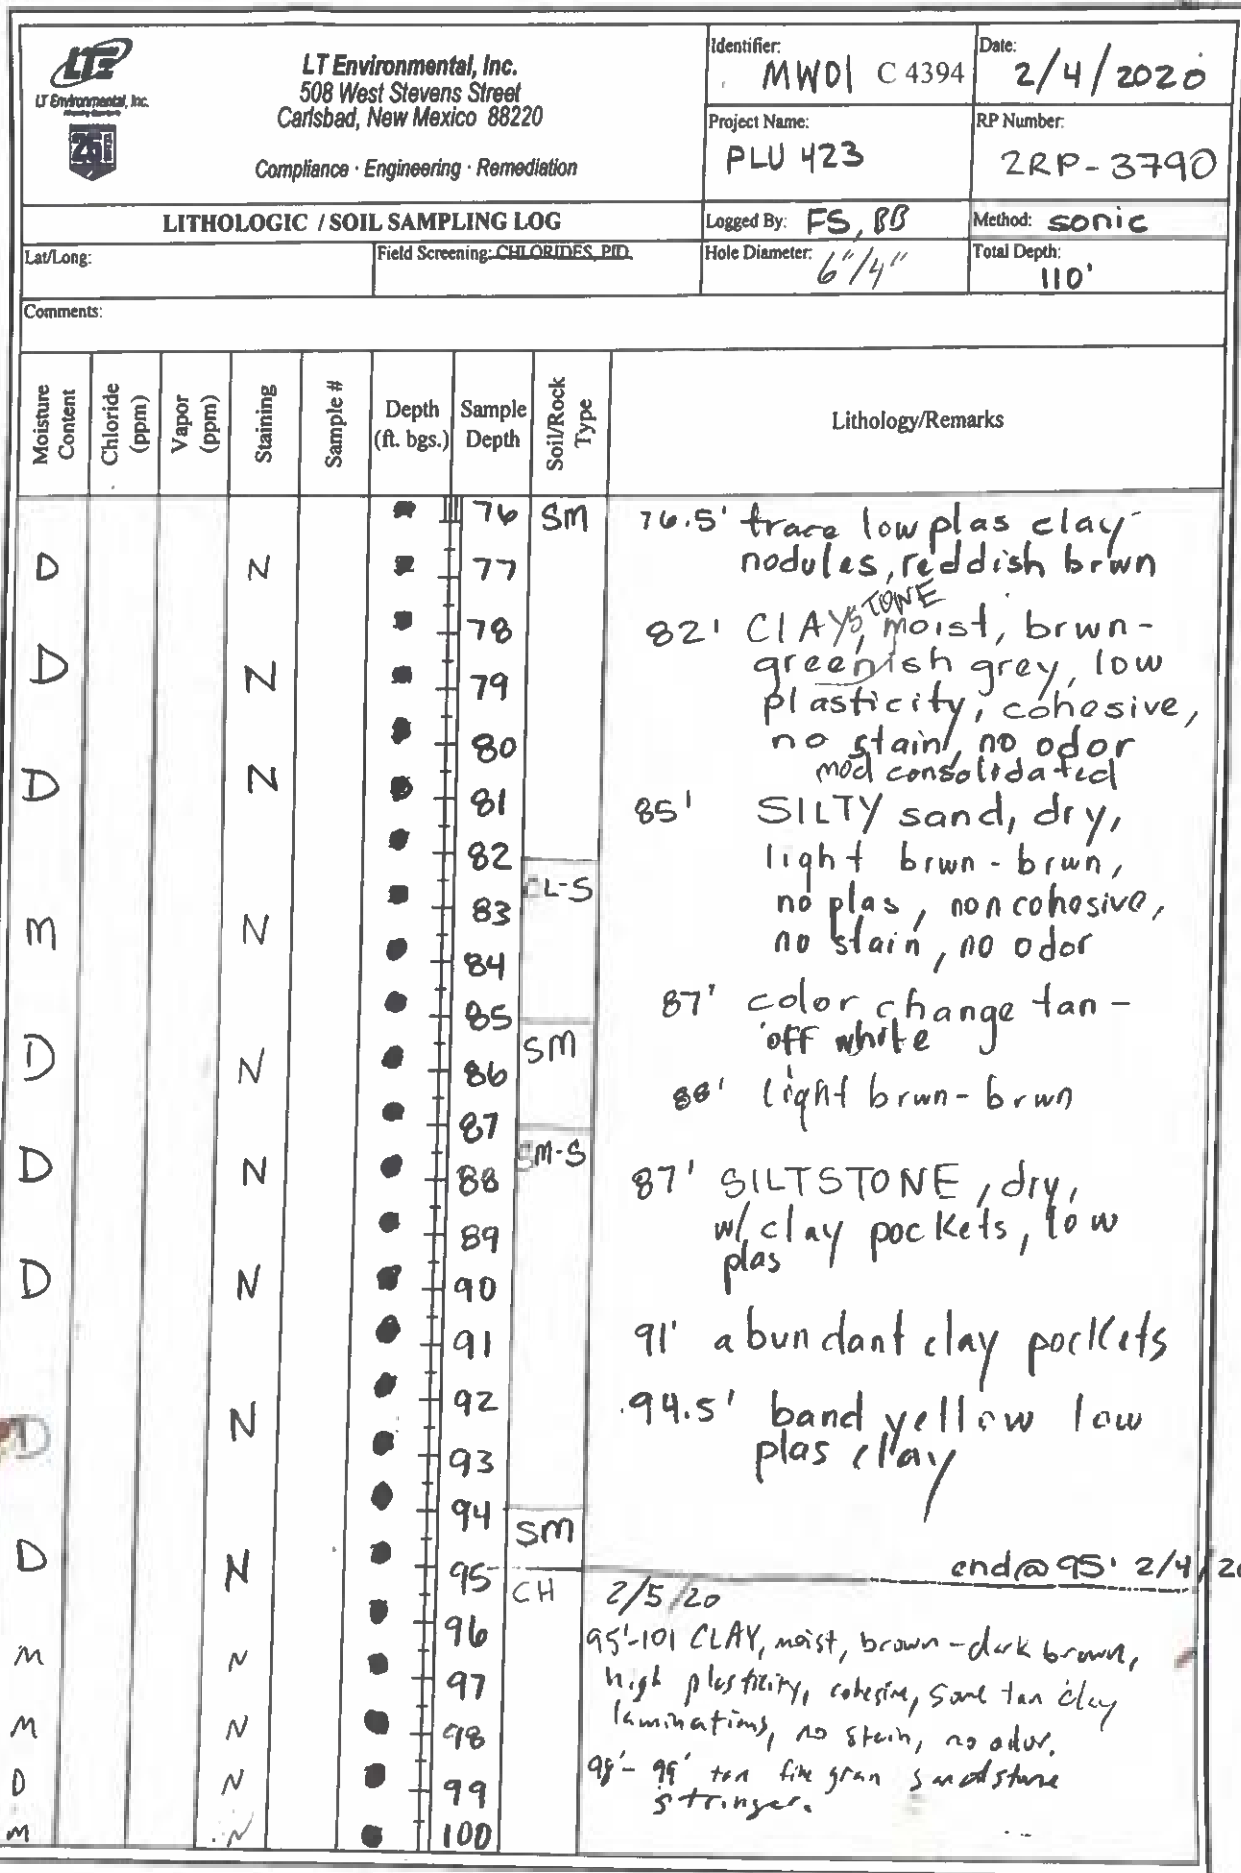 LTE
LT Environmental, Inc.
LT Environmental, Inc.
508 West Stevens Street
Carlsbad, New Mexico 88220
Compliance · Engineering · Remediation
Identifier:
MW01 C 4394
Date:
2/4/2020
Project Name:
PLU 423
RP Number:
2RP-3790
LITHOLOGIC / SOIL SAMPLING LOG
Logged By: FS, BB
Method: sonic
Lat/Long:
Field Screening: CHLORIDES, PID
Hole Diameter: 6"/4"
Total Depth:
110'
Comments:
Moisture Content
Chloride (ppm)
Vapor (ppm)
Staining
Sample #
Depth (ft. bgs.)
Sample Depth
Soil/Rock Type
Lithology/Remarks
76 SM 76.5' trace low plas clay
nodules, reddish brwn
D N 77
78 82' ClAYSTONE, moist, brwn-
greenish grey, low
D N 79 plasticity, cohesive,
80 no stain, no odor
mod consolidated
D N 81 85' SILTY sand, dry,
82 light brwn - brwn,
CL-S
83 no plas, noncohesive,
M N no stain, no odor
84
85 87' color change tan -
off white
SM
D N 86 88' light brwn - brwn
87
SM-S
D N 88 87' SILTSTONE, dry,
w/ clay pockets, low
89 plas
D N 90
91 91' abundant clay pockets
92 94.5' band yellow low
D N plas clay
93
94 SM
D N 95 end@95' 2/4/20
CH 2/5/20
96 95'-101 CLAY, moist, brown-dark brown,
M N 97 high plasticity, cohesive, some tan clay
laminations, no stain, no odor.
M N 98
98'-99' tan fine gran sandstone
D N 99 stringer.
M N 100